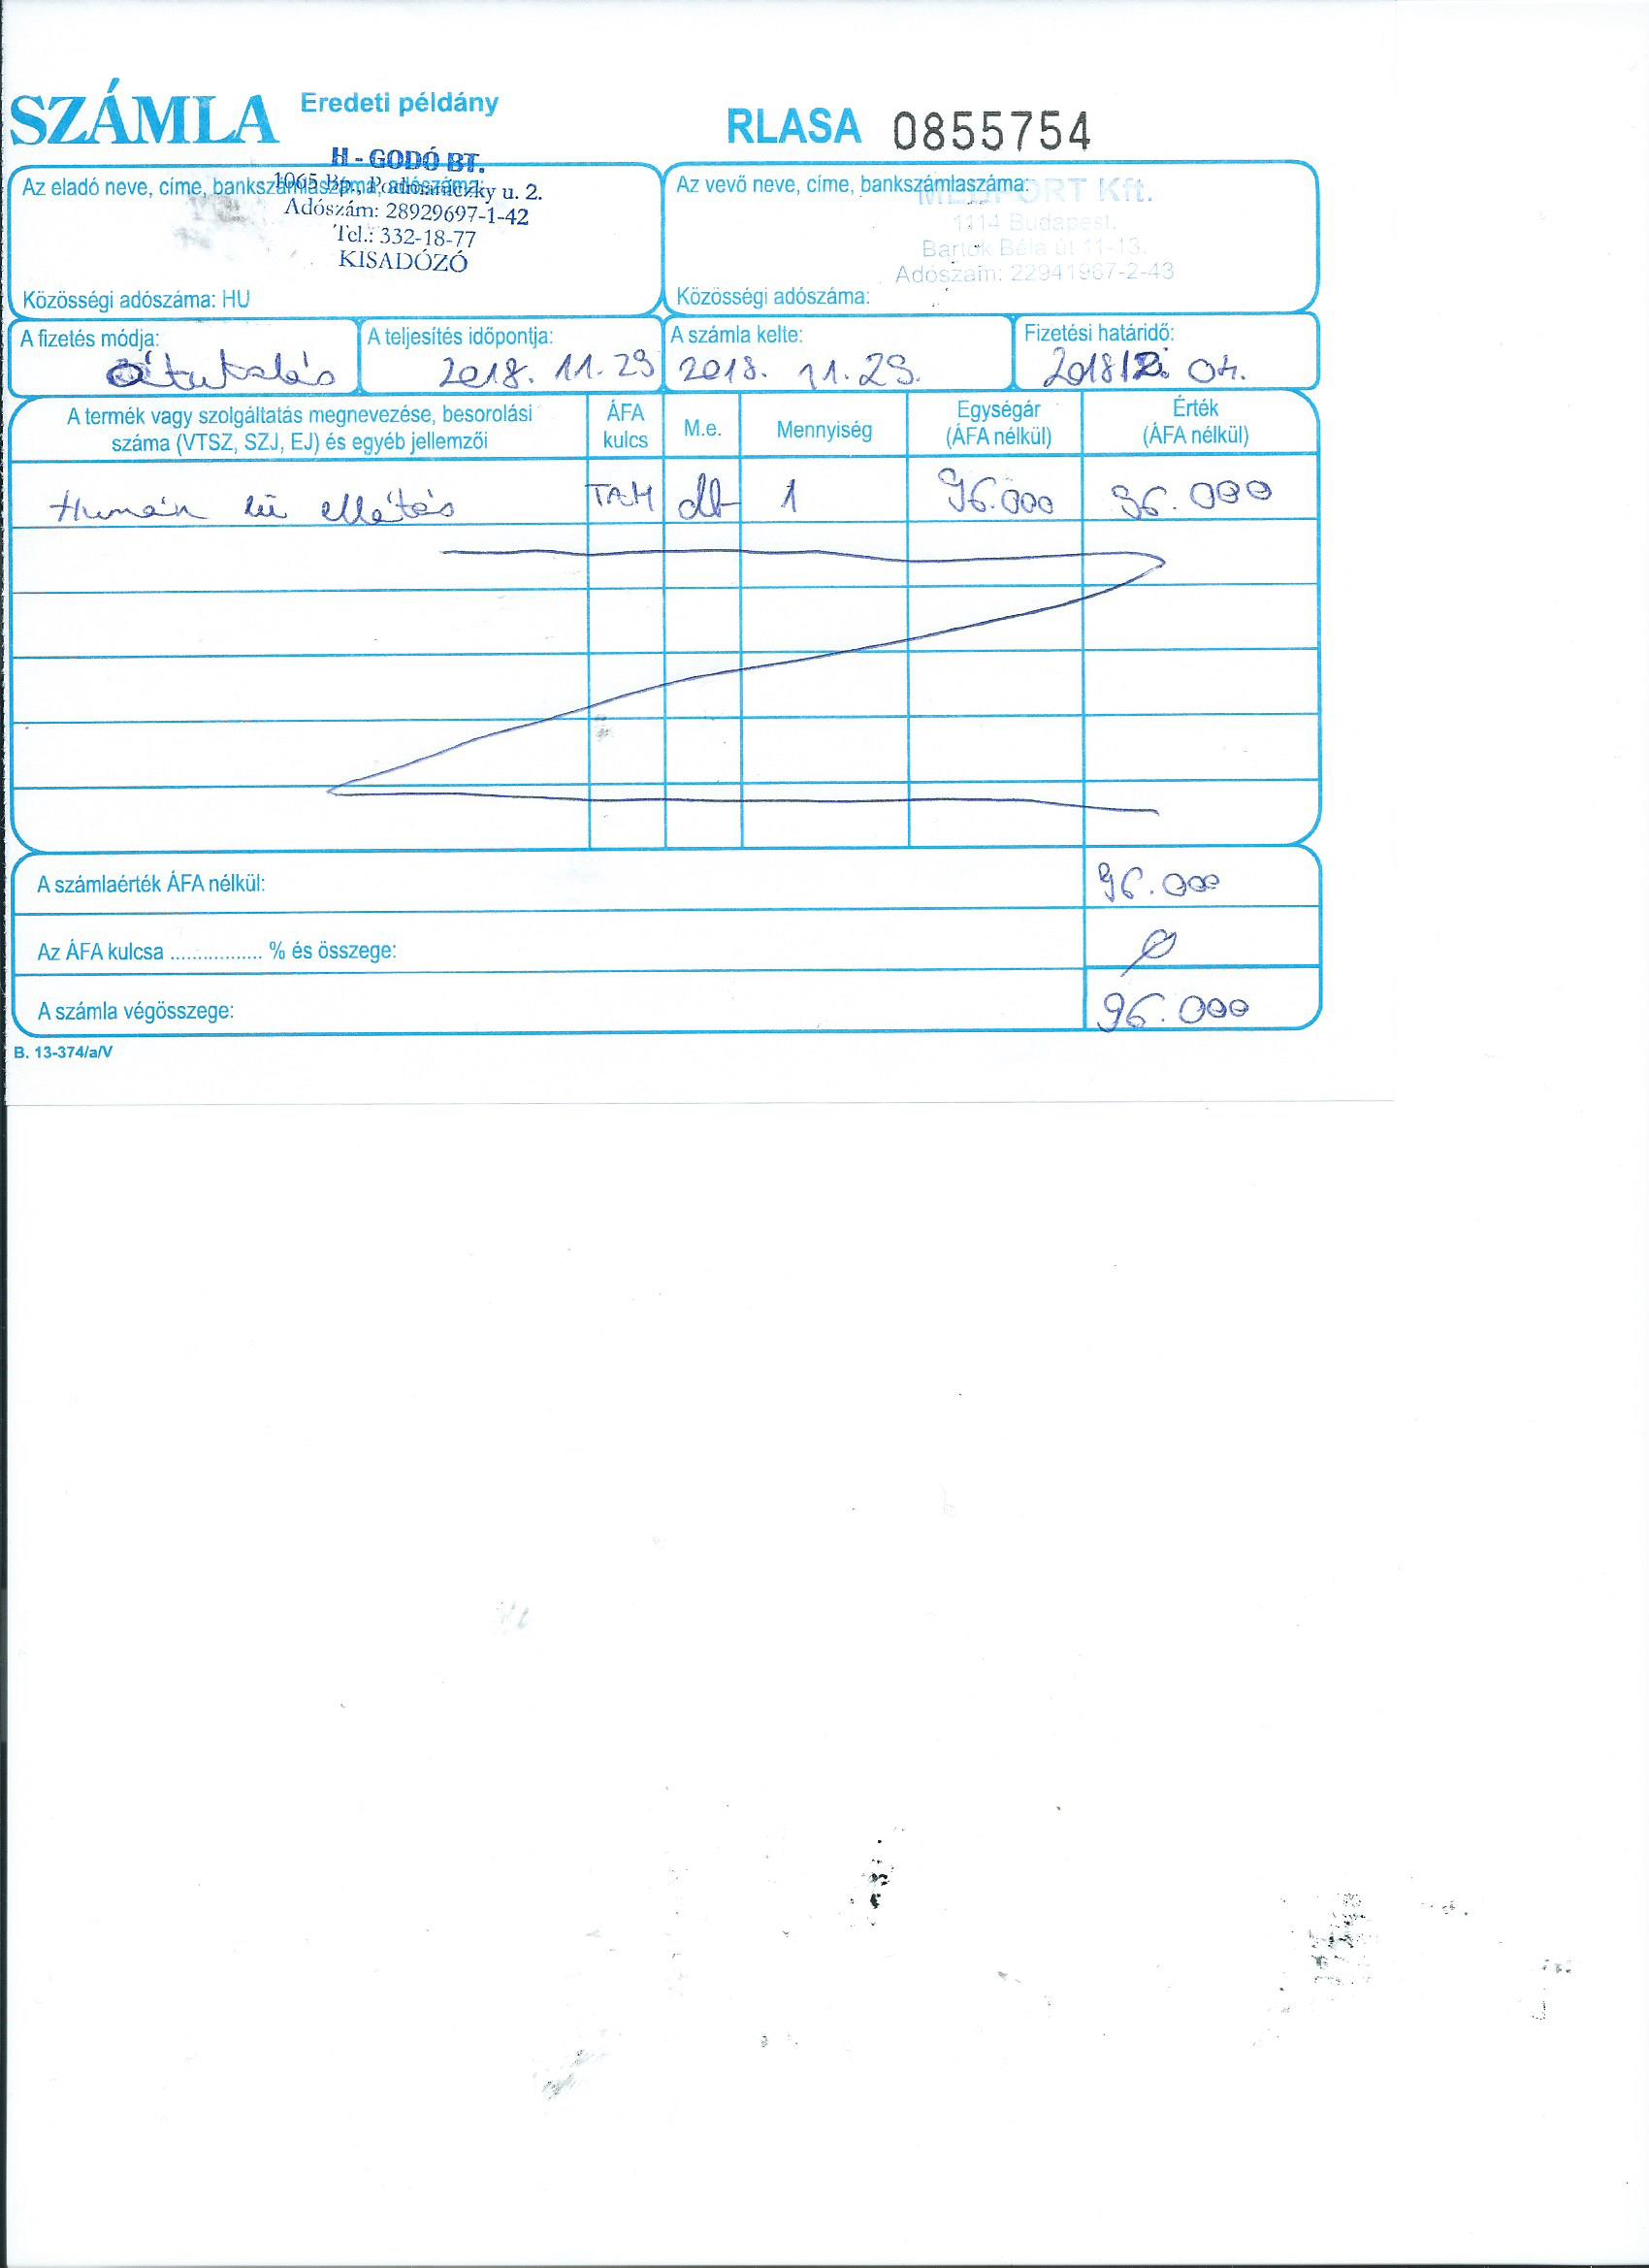 SZÁMLA Eredeti példány RLASA 0855754
H - GODÓ BT.
Az eladó neve, címe, bankszámlaszáma, adószáma:
1065 Bp., Podmaniczky u. 2.
Adószám: 28929697-1-42
Tel.: 332-18-77
KISADÓZÓ
Közösségi adószáma: HU
Az vevő neve, címe, bankszámlaszáma:
MEDPORT Kft.
1114 Budapest,
Bartók Béla út 11-13.
Adószám: 22941967-2-43
Közösségi adószáma:
A fizetés módja: A teljesítés időpontja: A számla kelte: Fizetési határidő:
átutalás 2018. 11. 29 2018. 11. 29. 2018 12. 04.
A termék vagy szolgáltatás megnevezése, besorolási
száma (VTSZ, SZJ, EJ) és egyéb jellemzői
ÁFA
kulcs
M.e.
Mennyiség
Egységár
(ÁFA nélkül)
Érték
(ÁFA nélkül)
Humán eü ellátás TAM db 1 96.000 96.000
A számlaérték ÁFA nélkül: 96.000
Az ÁFA kulcsa ................. % és összege: 0
A számla végösszege: 96.000
B. 13-374/a/V